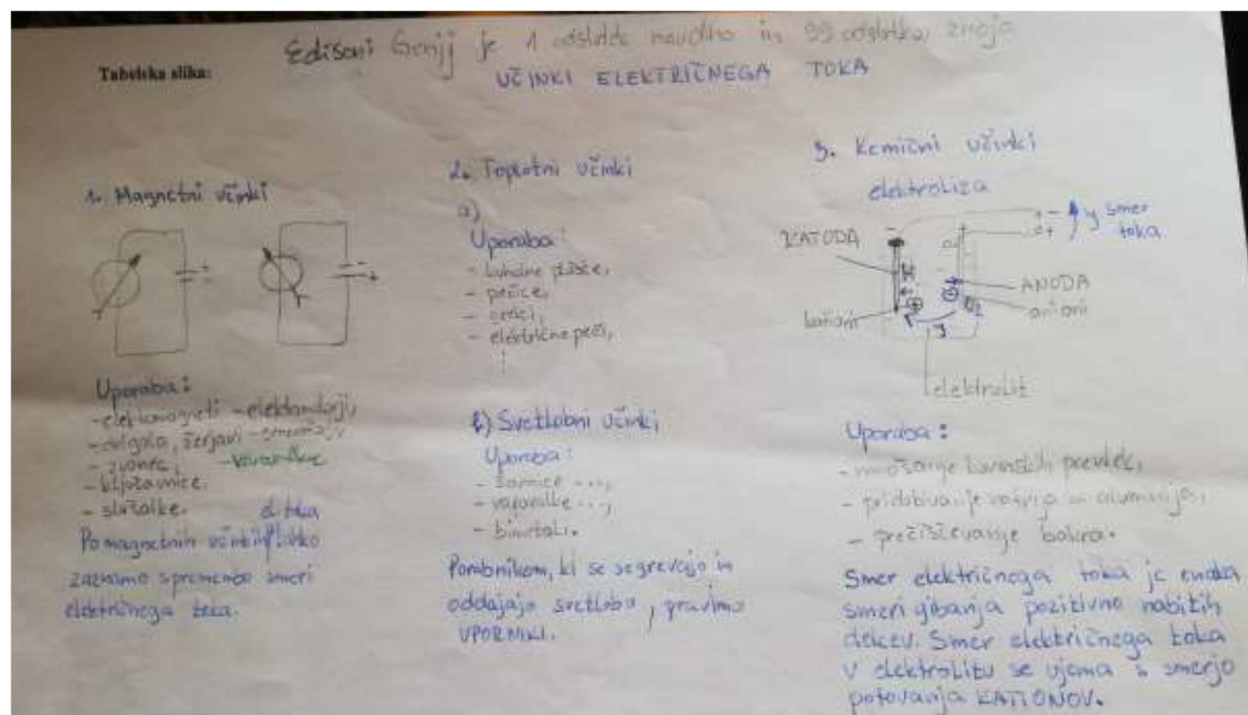 Tabelska slika:
Edison: Genij je 1 odstotek navdiha in 99 odstotkov znoja
UČINKI ELEKTRIČNEGA TOKA
1. Magnetni učinki
Uporaba:
- elektromagneti - elektromotorji
- dvigala, žerjavi
- zvonec,
- ključavnice,
- slušalke. el. toka
Po magnetnih učinkih lahko
zaznamo spremembo smeri
električnega toka.
2. Toplotni učinki
a)
Uporaba:
- kuhalne plošče,
- pečice,
- grelci,
- električne peči,
b) Svetlobni učinki
Uporaba:
- žarnice ...,
- varovalke ...,
- bimetali.
Porabnikom, ki se segrevajo in
oddajajo svetlobo, pravimo
UPORNIKI.
3. Kemični učinki
elektroliza
KATODA
smer
toka
ANODA
anioni
kationi
elektrolit
Uporaba:
- nanašanje kovinskih prevlek,
- pridobivanje natrija in aluminija,
- prečiščevanje bakra.
Smer električnega toka je enaka
smeri gibanja pozitivno nabitih
delcev. Smer električnega toka
v elektrolitu se ujema s smerjo
potovanja KATIONOV.